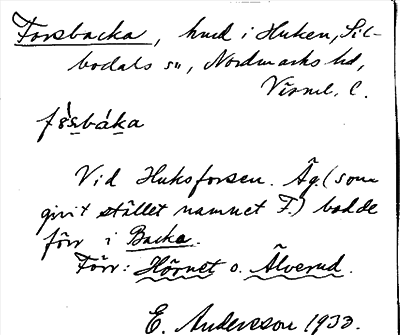 Forsbacka, hmd i Huken, Sil-
bodals sn, Nordmarks hd,
Värml. l.
Vid Huksforsen. Äg. (som
givit stället namnet F.) bodde
förr i Backa.
Förr: Hörnet o. Älverud.
E. Andersson 1933.